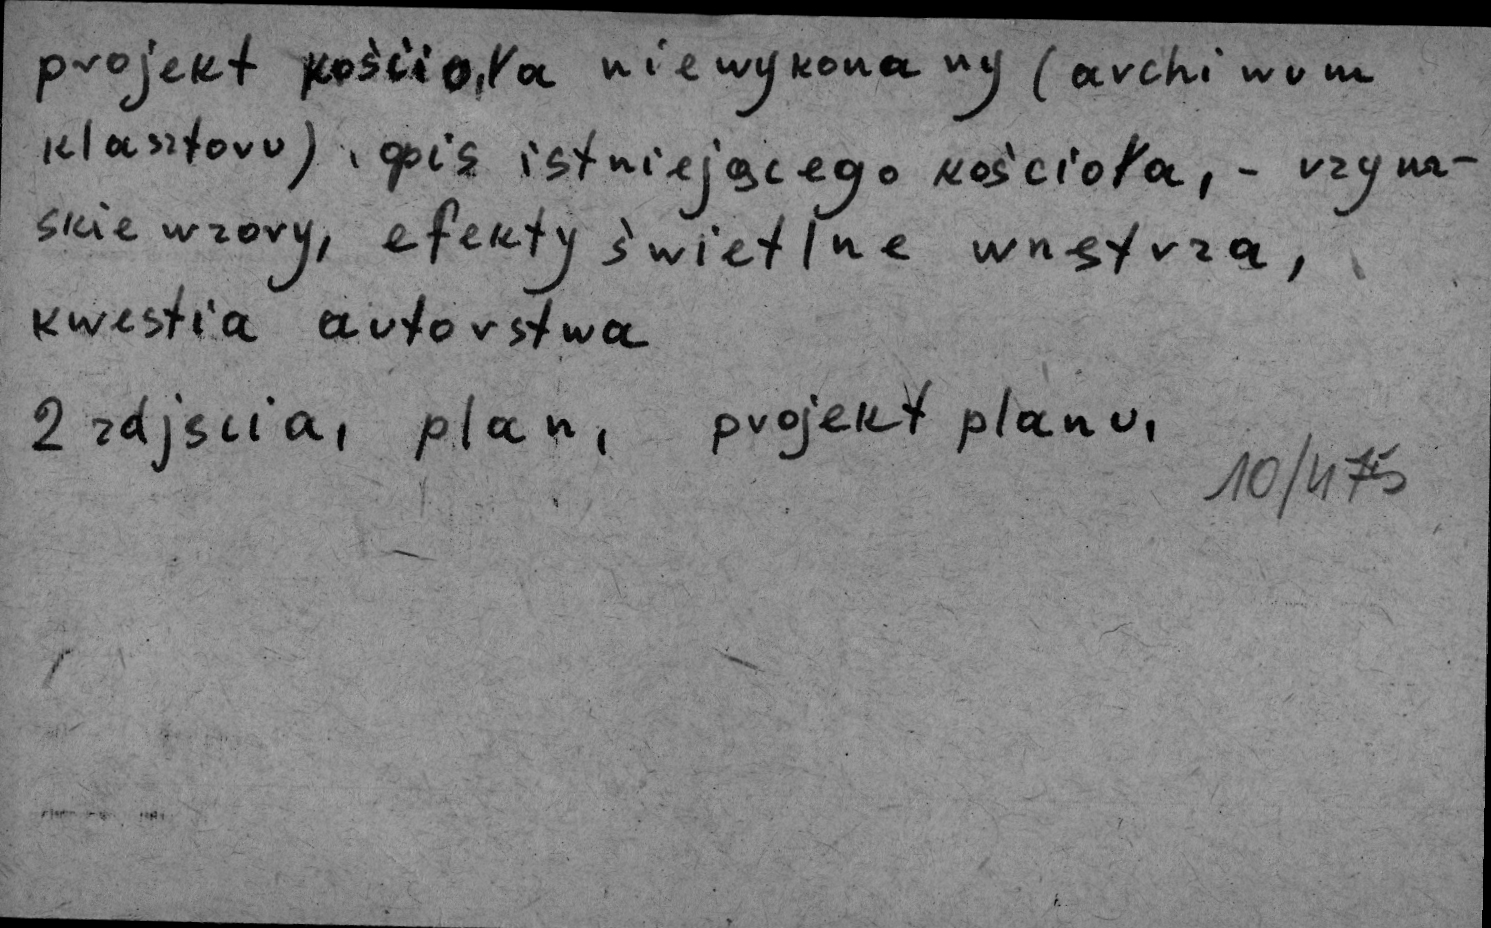 projekt kościoła niewykonany (archiwum
klasztoru), opis istniejącego kościoła, - rzym-
skie wzory, efekty świetlne wnętrza,
kwestia autorstwa
2 zdjęcia, plan, projekt planu,
10/475